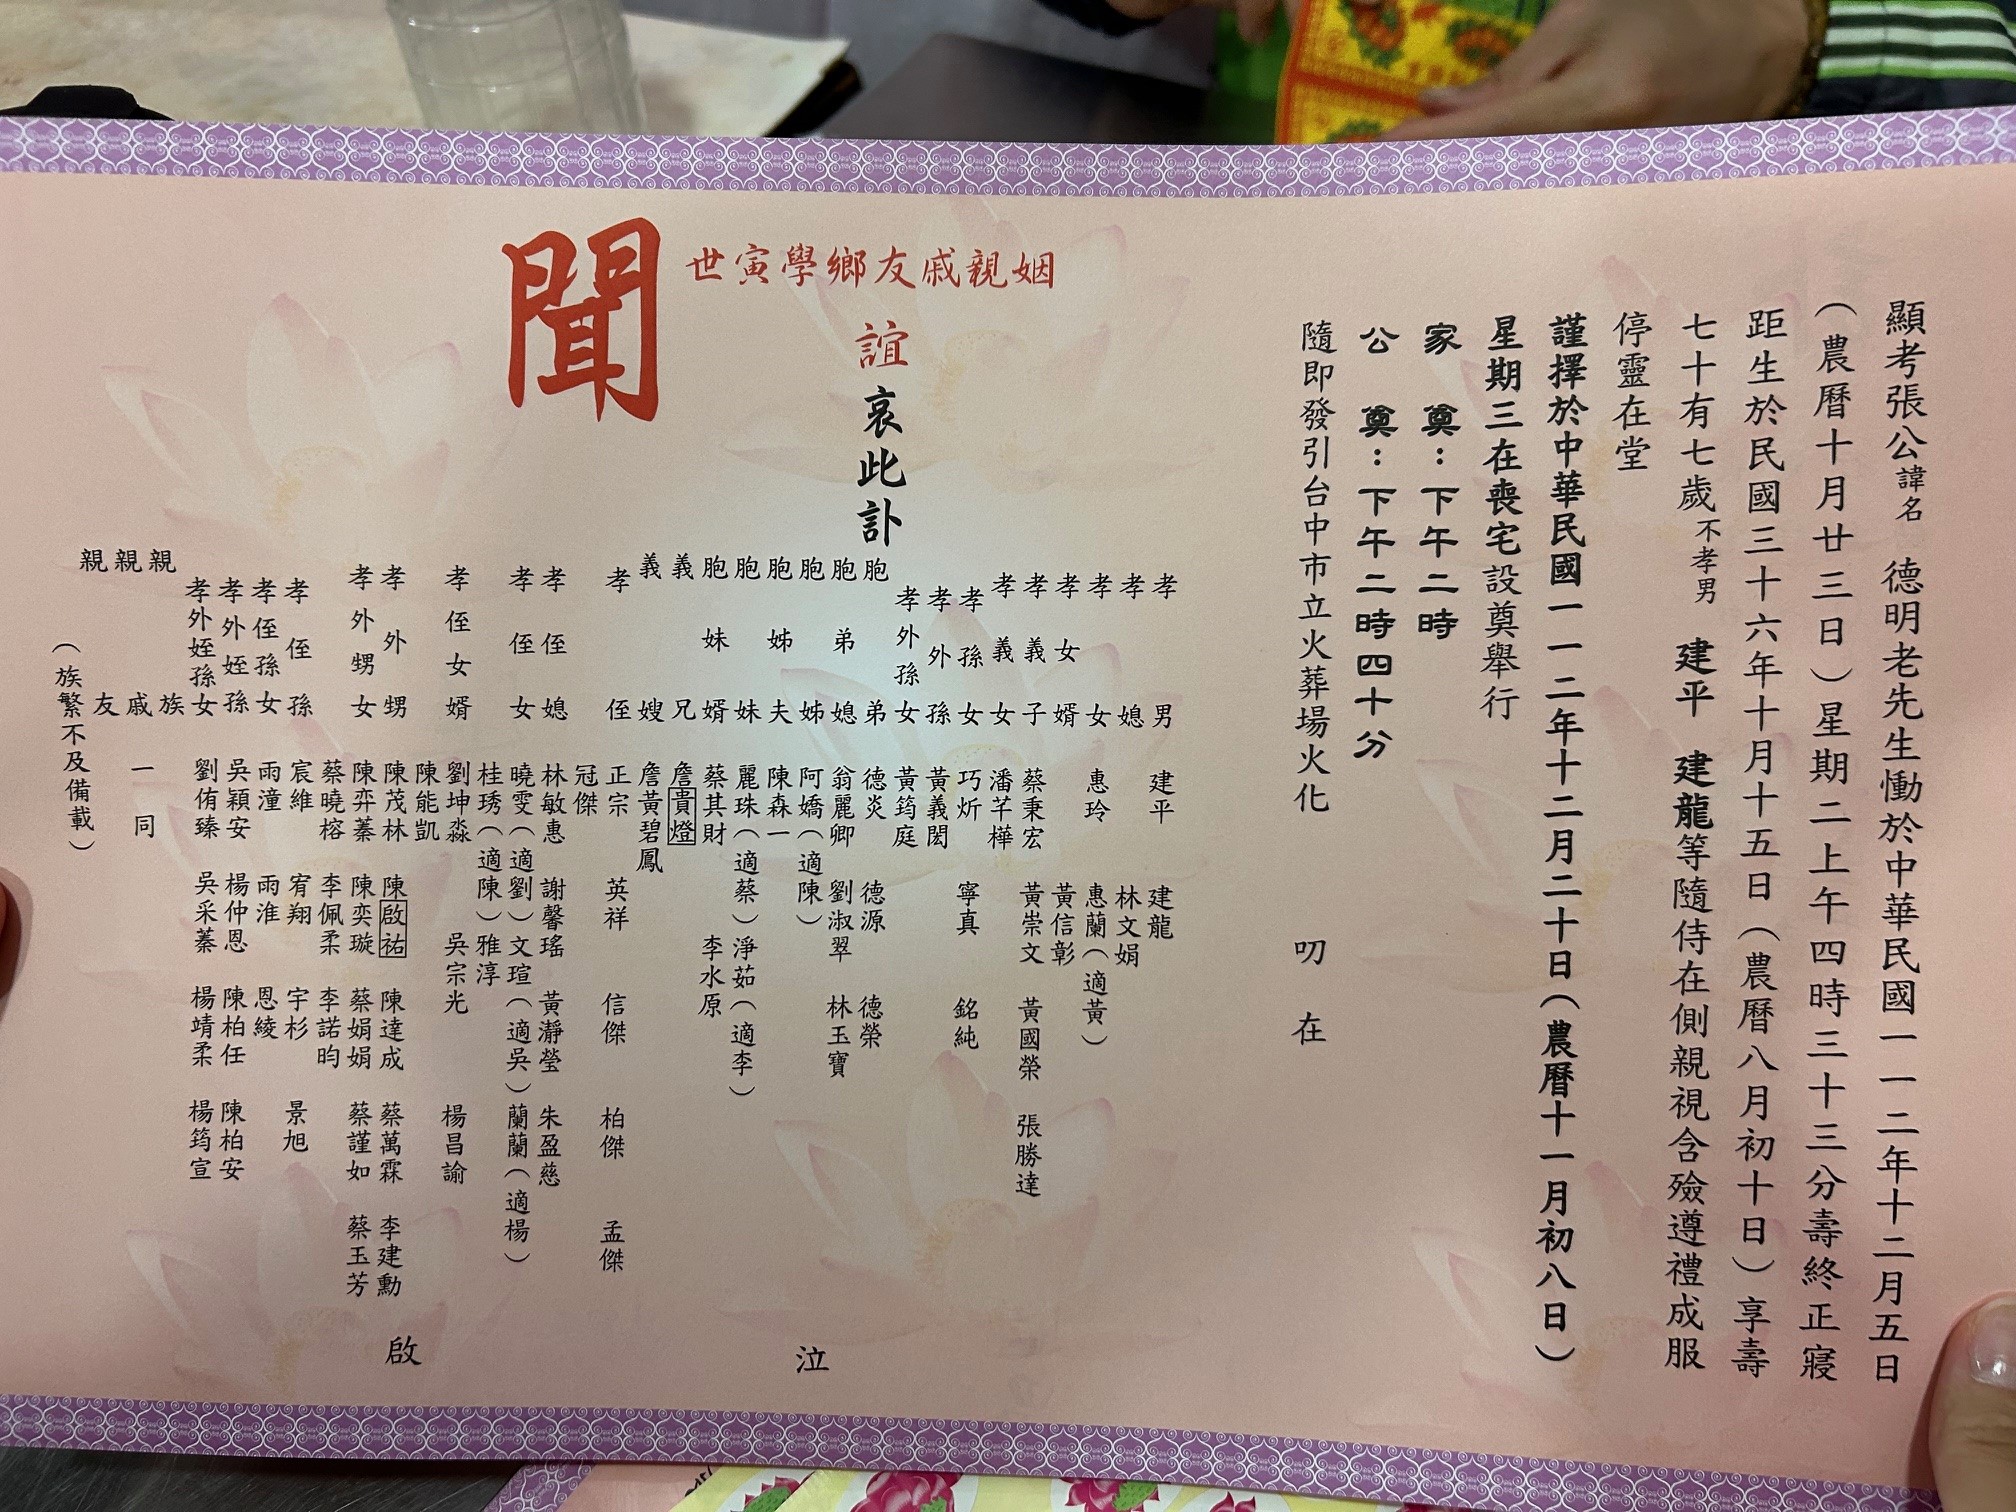 顯考張公諱名 德明老先生慟於中華民國一一二年十二月五日
（農曆十月廿三日）星期二上午四時三十三分壽終正寢
距生於民國三十六年十月十五日（農曆八月初十日）享壽
七十有七歲不孝男 建平 建龍等隨侍在側親視含殮遵禮成服
停靈在堂
謹擇於中華民國一一二年十二月二十日（農曆十一月初八日）
星期三在喪宅設奠舉行
家 奠：下午二時
公 奠：下午二時四十分
隨即發引台中市立火葬場火化 叨 在
世寅學鄉友戚親姻
誼哀此訃
聞
孝男 建平 建龍
孝媳 林文娟
孝女 惠玲 惠蘭（適黃）
孝女婿 黃信彰
孝義子 蔡秉宏 黃崇文 黃國榮 張勝達
孝義女 潘芊樺
孝孫女 巧炘 寧真 銘純
孝外孫 黃義閎
孝外孫女 黃筠庭
胞弟 德炎 德源 德榮
胞弟媳 翁麗卿 劉淑翠 林玉寶
胞姊 阿嬌（適陳）
胞姊夫 陳森一
胞妹 麗珠（適蔡）淨茹（適李）
胞妹婿 蔡其財 李水原
義兄 詹貴燈
義嫂 詹黃碧鳳
孝侄 正宗 英祥 信傑 柏傑 孟傑
冠傑
孝侄媳 林敏惠 謝馨瑤 黃瀞瑩 朱盈慈
孝侄女 曉雯（適劉）文瑄（適吳）蘭蘭（適楊）
桂琇（適陳）雅淳
孝侄女婿 劉坤淼 吳宗光 楊昌諭
陳能凱
孝外甥 陳茂林 陳啟祐 陳達成 蔡萬霖 李建勳
孝外甥女 陳弈蓁 陳奕璇 蔡娟娟 蔡謹如 蔡玉芳
蔡曉榕 李佩柔 李諾昀
孝侄孫 宸維 宥翔 宇杉 景旭
孝侄孫女 雨潼 雨淮 恩綾
孝外姪孫 吳穎安 楊仲恩 陳柏任 陳柏安
孝外姪孫女 劉侑臻 吳采蓁 楊靖柔 楊筠宣
親族
親戚 一同
親友
（族繁不及備載）
泣
啟